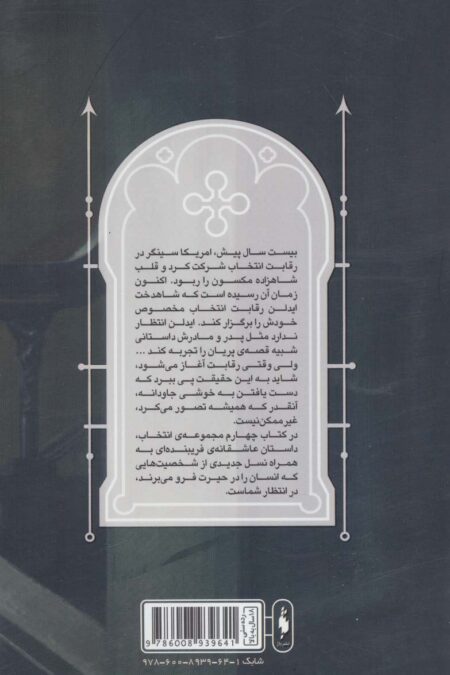 بیست سال پیش، امریکا سینگر در
رقابت انتخاب شرکت کرد و قلب
شاهزاده مکسون را ربود. اکنون
زمان آن رسیده است که شاهدخت
ایدلن رقابت انتخاب مخصوص
خودش را برگزار کند. ایدلن انتظار
ندارد مثل پدر و مادرش داستانی
شبیه قصه‌ی پریان را تجربه کند ...
ولی وقتی رقابت آغاز می‌شود،
شاید به این حقیقت پی ببرد که
دست یافتن به خوشی جاودانه،
آنقدر که همیشه تصور می‌کرد،
غیر ممکن نیست.
در کتاب چهارم مجموعه‌ی انتخاب،
داستان عاشقانه‌ی فریبنده‌ای به
همراه نسل جدیدی از شخصیت‌هایی
که انسان را در حیرت فرو می‌برند،
در انتظار شماست.
رده سنی
۱۸ سال به بالا
9 786008 939641
شابک ۱-۶۴-۸۹۳۹-۶۰۰-۹۷۸